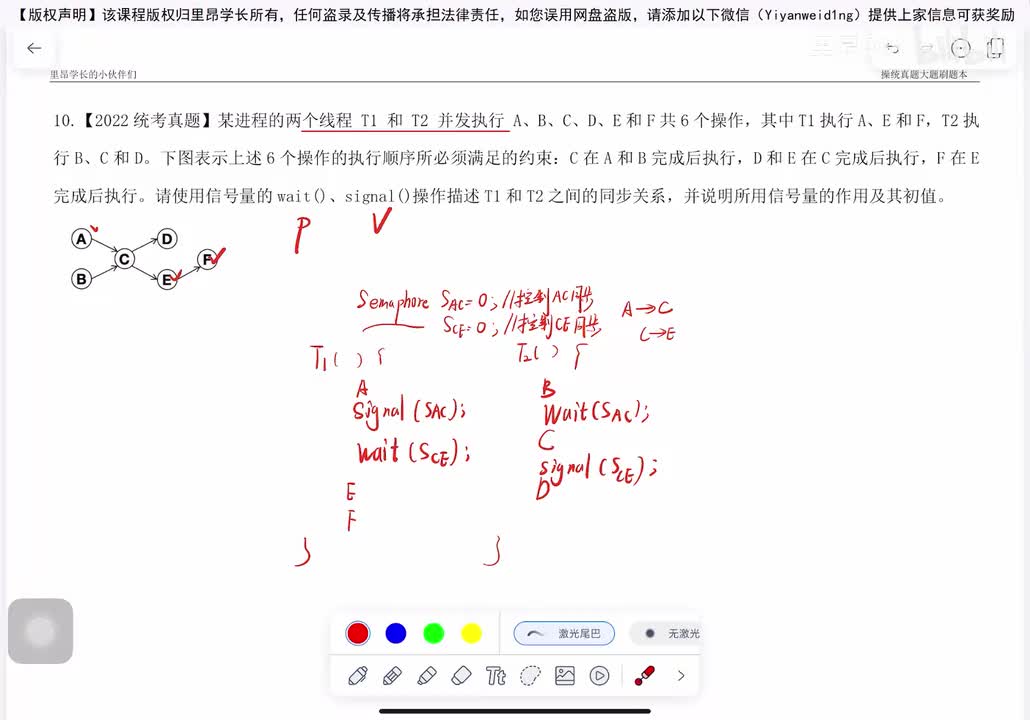 【版权声明】该课程版权归里昂学长所有，任何盗录及传播将承担法律责任，如您误用网盘盗版，请添加以下微信（Yiyanweid1ng）提供上家信息可获奖励
里昂学长的小伙伴们
操统真题大题刷题本
10.【2022 统考真题】某进程的两个线程 T1 和 T2 并发执行 A、B、C、D、E 和 F 共 6 个操作，其中 T1 执行 A、E 和 F，T2 执
行 B、C 和 D。下图表示上述 6 个操作的执行顺序所必须满足的约束：C 在 A 和 B 完成后执行，D 和 E 在 C 完成后执行，F 在 E
完成后执行。请使用信号量的 wait()、signal()操作描述 T1 和 T2 之间的同步关系，并说明所用信号量的作用及其初值。
P V
A D
C F
B E
Semaphore SAC=0; //控制AC同步
SCE=0; //控制CE同步
A→C
C→E
T1( ) {
T2( ) {
A
Signal(SAC);
wait(SCE);
E
F
}
B
Wait(SAC);
C
signal(SCE);
D
}
激光尾巴
无激光
Tt